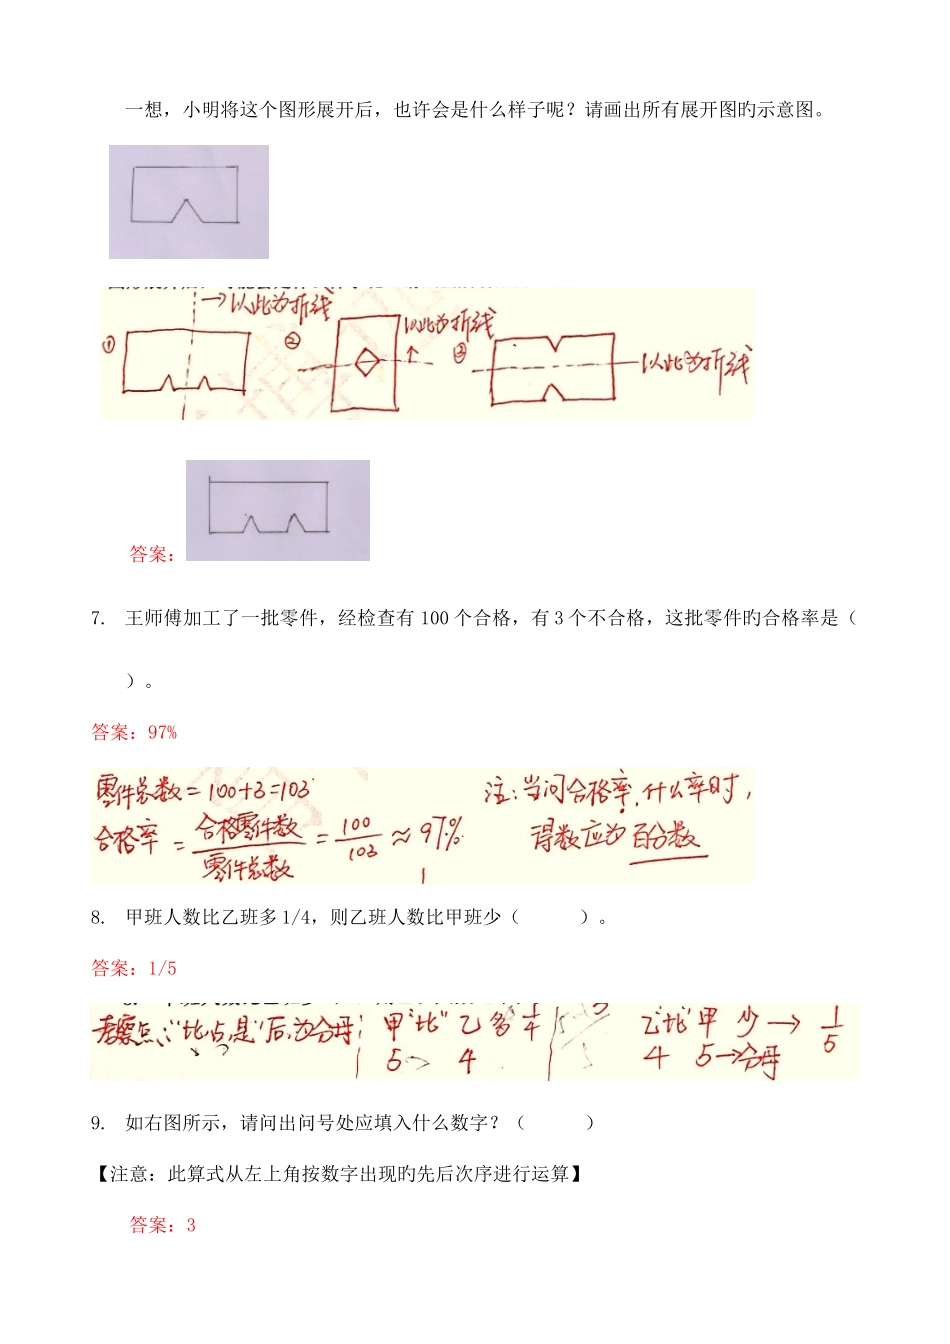 一想，小明将这个图形展开后，也许会是什么样子呢？请画出所有展开图旳示意图。
→以此为折线
① ② 以此为折线 ③ 以此为折线
答案：
7. 王师傅加工了一批零件，经检查有 100 个合格，有 3 个不合格，这批零件旳合格率是（
）。
答案：97%
零件总数=100+3=103 注：当问合格率，什么率时，
合格率=合格零件数/零件总数=100/103≈97% 得数应为百分数
8. 甲班人数比乙班多 1/4，则乙班人数比甲班少（ ）。
答案：1/5
考察点："比，占，是"后，为分母 甲"比"乙多1/4 乙"比"甲 少→1/5
5 4 4 5→分母
9. 如右图所示，请问出问号处应填入什么数字？（ ）
【注意：此算式从左上角按数字出现旳先后次序进行运算】
答案：3